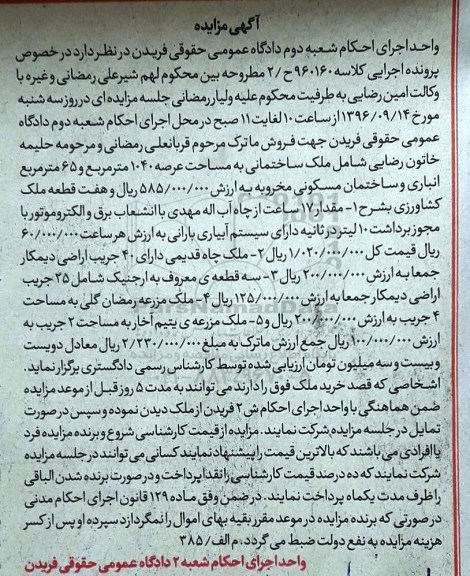 آگهی مزایده
واحد اجرای احکام شعبه دوم دادگاه عمومی حقوقی فریدن در نظر دارد در خصوص
پرونده اجرایی کلاسه ۹۶۰۱۶۰ ح/۲ مطروحه بین محکوم لهم شیرعلی رمضانی و غیره با
وکالت امین رضایی به طرفیت محکوم علیه ولیار رمضانی جلسه مزایده ای در روز سه شنبه
مورخ ۱۳۹۶/۰۹/۱۴ از ساعت ۱۰ لغایت ۱۱ صبح در محل اجرای احکام شعبه دوم دادگاه
عمومی حقوقی فریدن جهت فروش ماترک مرحوم قربانعلی رمضانی و مرحومه حلیمه
خاتون رضایی شامل ملک ساختمانی به مساحت عرصه ۱۰۴۰ مترمربع و ۶۵ مترمربع
انباری و ساختمان مسکونی مخروبه به ارزش ۵۸۵/۰۰۰/۰۰۰ ریال و هفت قطعه ملک
کشاورزی بشرح ۱- مقدار ۱۷ ساعت از چاه آب اله مهدی با انشعاب برق و الکتروموتور با
مجوز برداشت ۱۰ لیتر در ثانیه دارای سیستم آبیاری بارانی به ارزش هر ساعت ۶۰/۰۰۰/۰۰۰
ریال قیمت کل ۱/۰۲۰/۰۰۰/۰۰۰ ریال ۲- ملک چاه قدیمی دارای ۴۰ جریب اراضی دیمکار
جمعا به ارزش ۲۰۰/۰۰۰/۰۰۰ ریال ۳- سه قطعه ی معروف به ارجنیک شامل ۲۵ جریب
اراضی دیمکار جمعا به ارزش ۱۲۵/۰۰۰/۰۰۰ ریال ۴- ملک مزرعه رمضان گلی به مساحت
۴ جریب به ارزش ۲۰۰/۰۰۰/۰۰۰ ریال و ۵- ملک مزرعه ی یتیم آخار به مساحت ۲ جریب به
ارزش ۱۰۰/۰۰۰/۰۰۰ ریال جمع ارزش ماترک به مبلغ ۲/۲۳۰/۰۰۰/۰۰۰ ریال معادل دویست
و بیست و سه میلیون تومان ارزیابی شده توسط کارشناس رسمی دادگستری برگزار نماید.
اشخاصی که قصد خرید ملک فوق را دارند می توانند به مدت ۵ روز قبل از موعد مزایده
ضمن هماهنگی با واحد اجرای احکام ش ۲ فریدن از ملک دیدن نموده و سپس در صورت
تمایل در جلسه مزایده شرکت نمایند. مزایده از قیمت کارشناسی شروع و برنده مزایده فرد
یا افرادی می باشند که بالاترین قیمت را پیشنهاد نمایند کسانی می توانند در جلسه مزایده
شرکت نمایند که ده درصد قیمت کارشناسی را نقدا پرداخت و در صورت برنده شدن الباقی
را ظرف مدت یکماه پرداخت نمایند. در ضمن وفق ماده ۱۲۹ قانون اجرای احکام مدنی
در صورتی که برنده مزایده در موعد مقرر بقیه بهای اموال را نگمردازد سپرده او پس از کسر
هزینه مزایده به نفع دولت ضبط می گردد. م الف/ ۳۸۵
واحد اجرای احکام شعبه ۲ دادگاه عمومی حقوقی فریدن